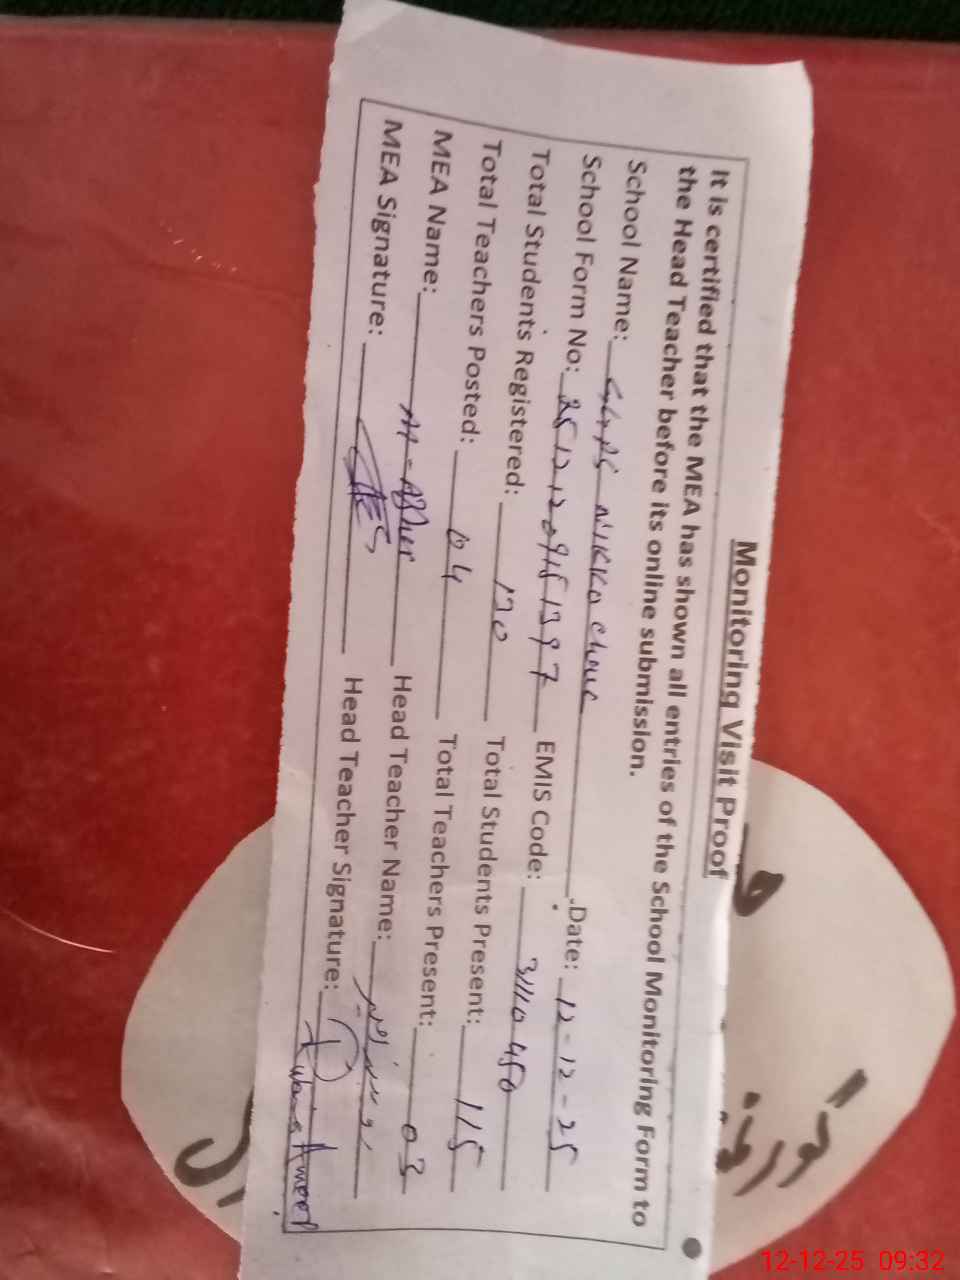 Monitoring Visit Proof
It is certified that the MEA has shown all entries of the School Monitoring Form to
the Head Teacher before its online submission.
School Name: Nikka Date: 12-12-25
School Form No: EMIS Code: 31110450
Total Students Registered: 170 Total Students Present: 115
Total Teachers Posted: 04 Total Teachers Present: 03
MEA Name: Head Teacher Name:
MEA Signature: Head Teacher Signature:
12-12-25 09:32